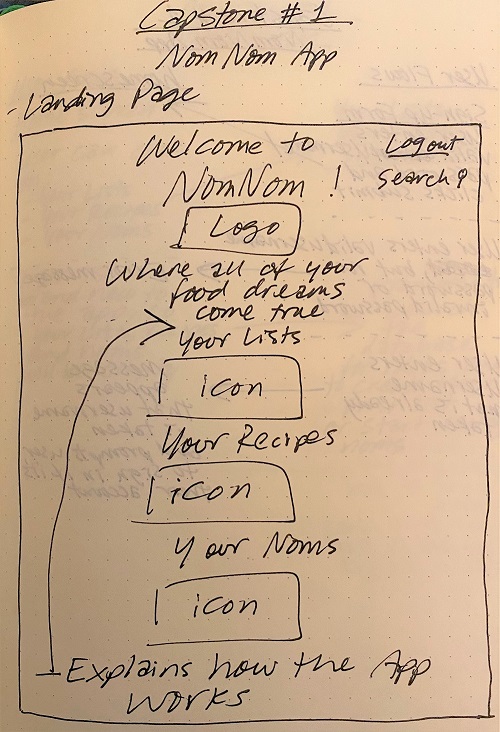 Capstone #1
Nom Nom App
- Landing Page
Welcome to
NomNom !
Logout
Search?
Logo
Where all of your
food dreams
come true
Your Lists
icon
Your Recipes
icon
Your Noms
icon
Explains how the App
works